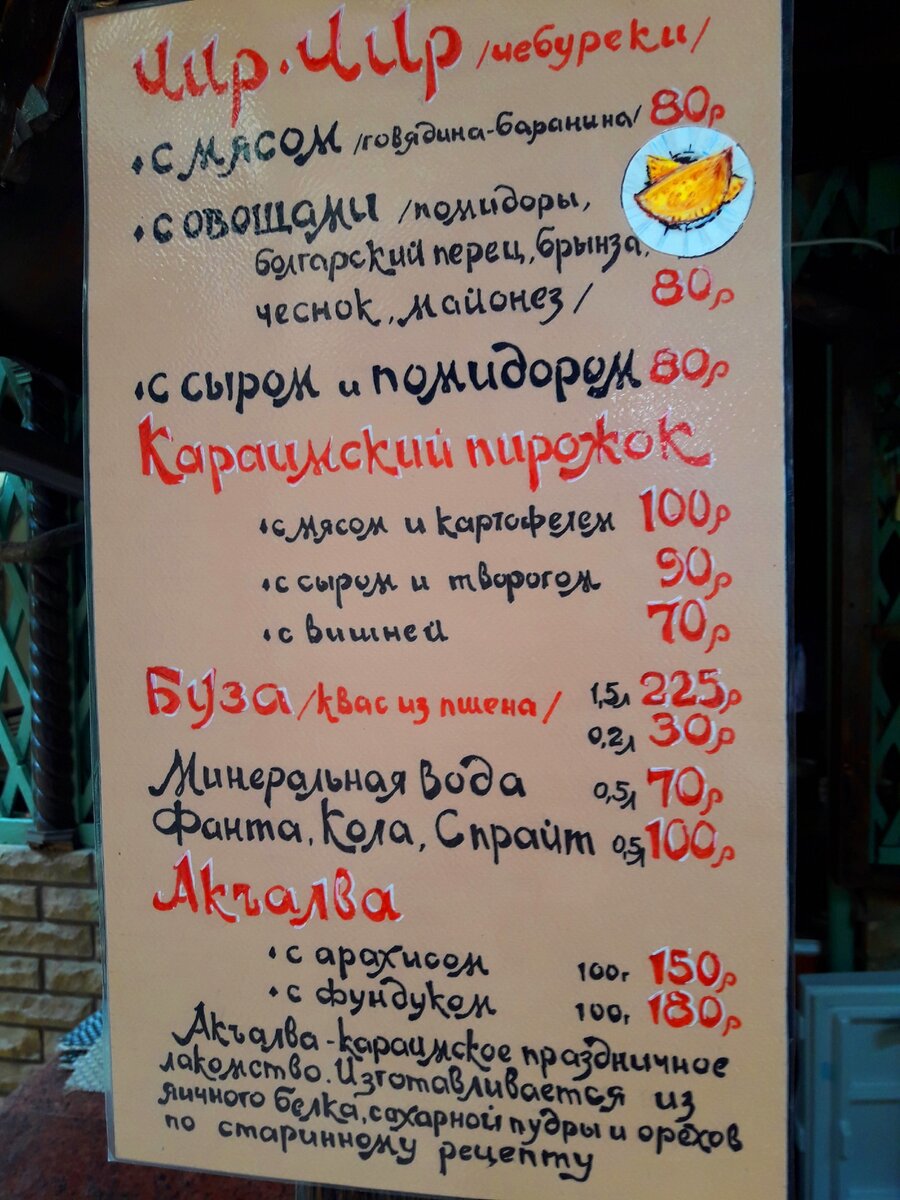 Чир-Чир /чебуреки/
• с мясом /говядина-баранина/ 80р
• с овощами /помидоры,
болгарский перец, брынза,
чеснок, майонез/ 80р
• с сыром и помидором 80р
Караимский пирожок
• с мясом и картофелем 100р
• с сыром и творогом 90р
• с вишней 70р
Буза /квас из пшена/ 1,5л 225р
0,2л 30р
Минеральная вода 0,5л 70р
Фанта, Кола, Спрайт 0,5л 100р
Акъалва
• с арахисом 100г 150р
• с фундуком 100г 180р
Акъалва - караимское праздничное
лакомство. Изготавливается из
яичного белка, сахарной пудры и орехов
по старинному рецепту